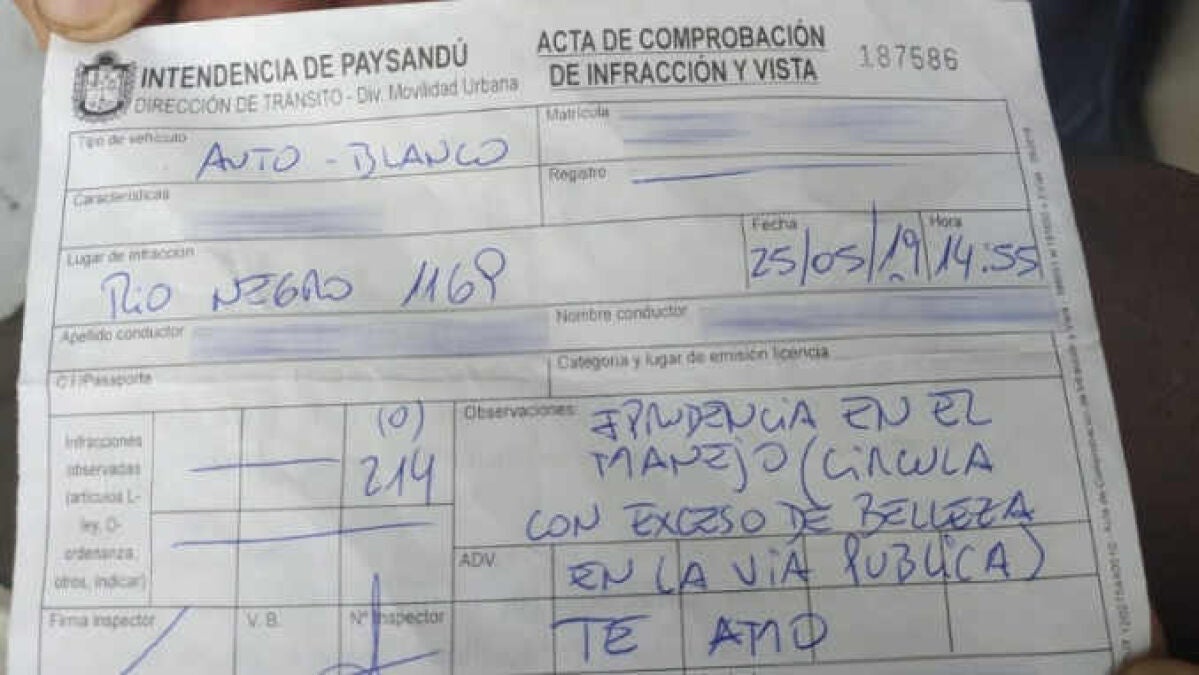 INTENDENCIA DE PAYSANDÚ
DIRECCIÓN DE TRÁNSITO - Div. Movilidad Urbana
ACTA DE COMPROBACIÓN
DE INFRACCIÓN Y VISTA
187586
Tipo de vehículo
AUTO - BLANCO
Matrícula
Características
Registro
Lugar de infracción
RIO NEGRO 1169
Fecha
25/05/19
Hora
14:55
Apellido conductor
Nombre conductor
C.I/Pasaporte
Categoria y lugar de emisión licencia
Infracciones
observadas
(artículos L-
ley, O-
ordenanza,
otros, indicar)
(0)
214
Observaciones:
IPRUDENCIA EN EL
MANEJO (CIRCULA
CON EXCESO DE BELLEZA
EN LA VIA PUBLICA)
TE AMO
ADV.
Firma inspector
V. B.
Nº Inspector